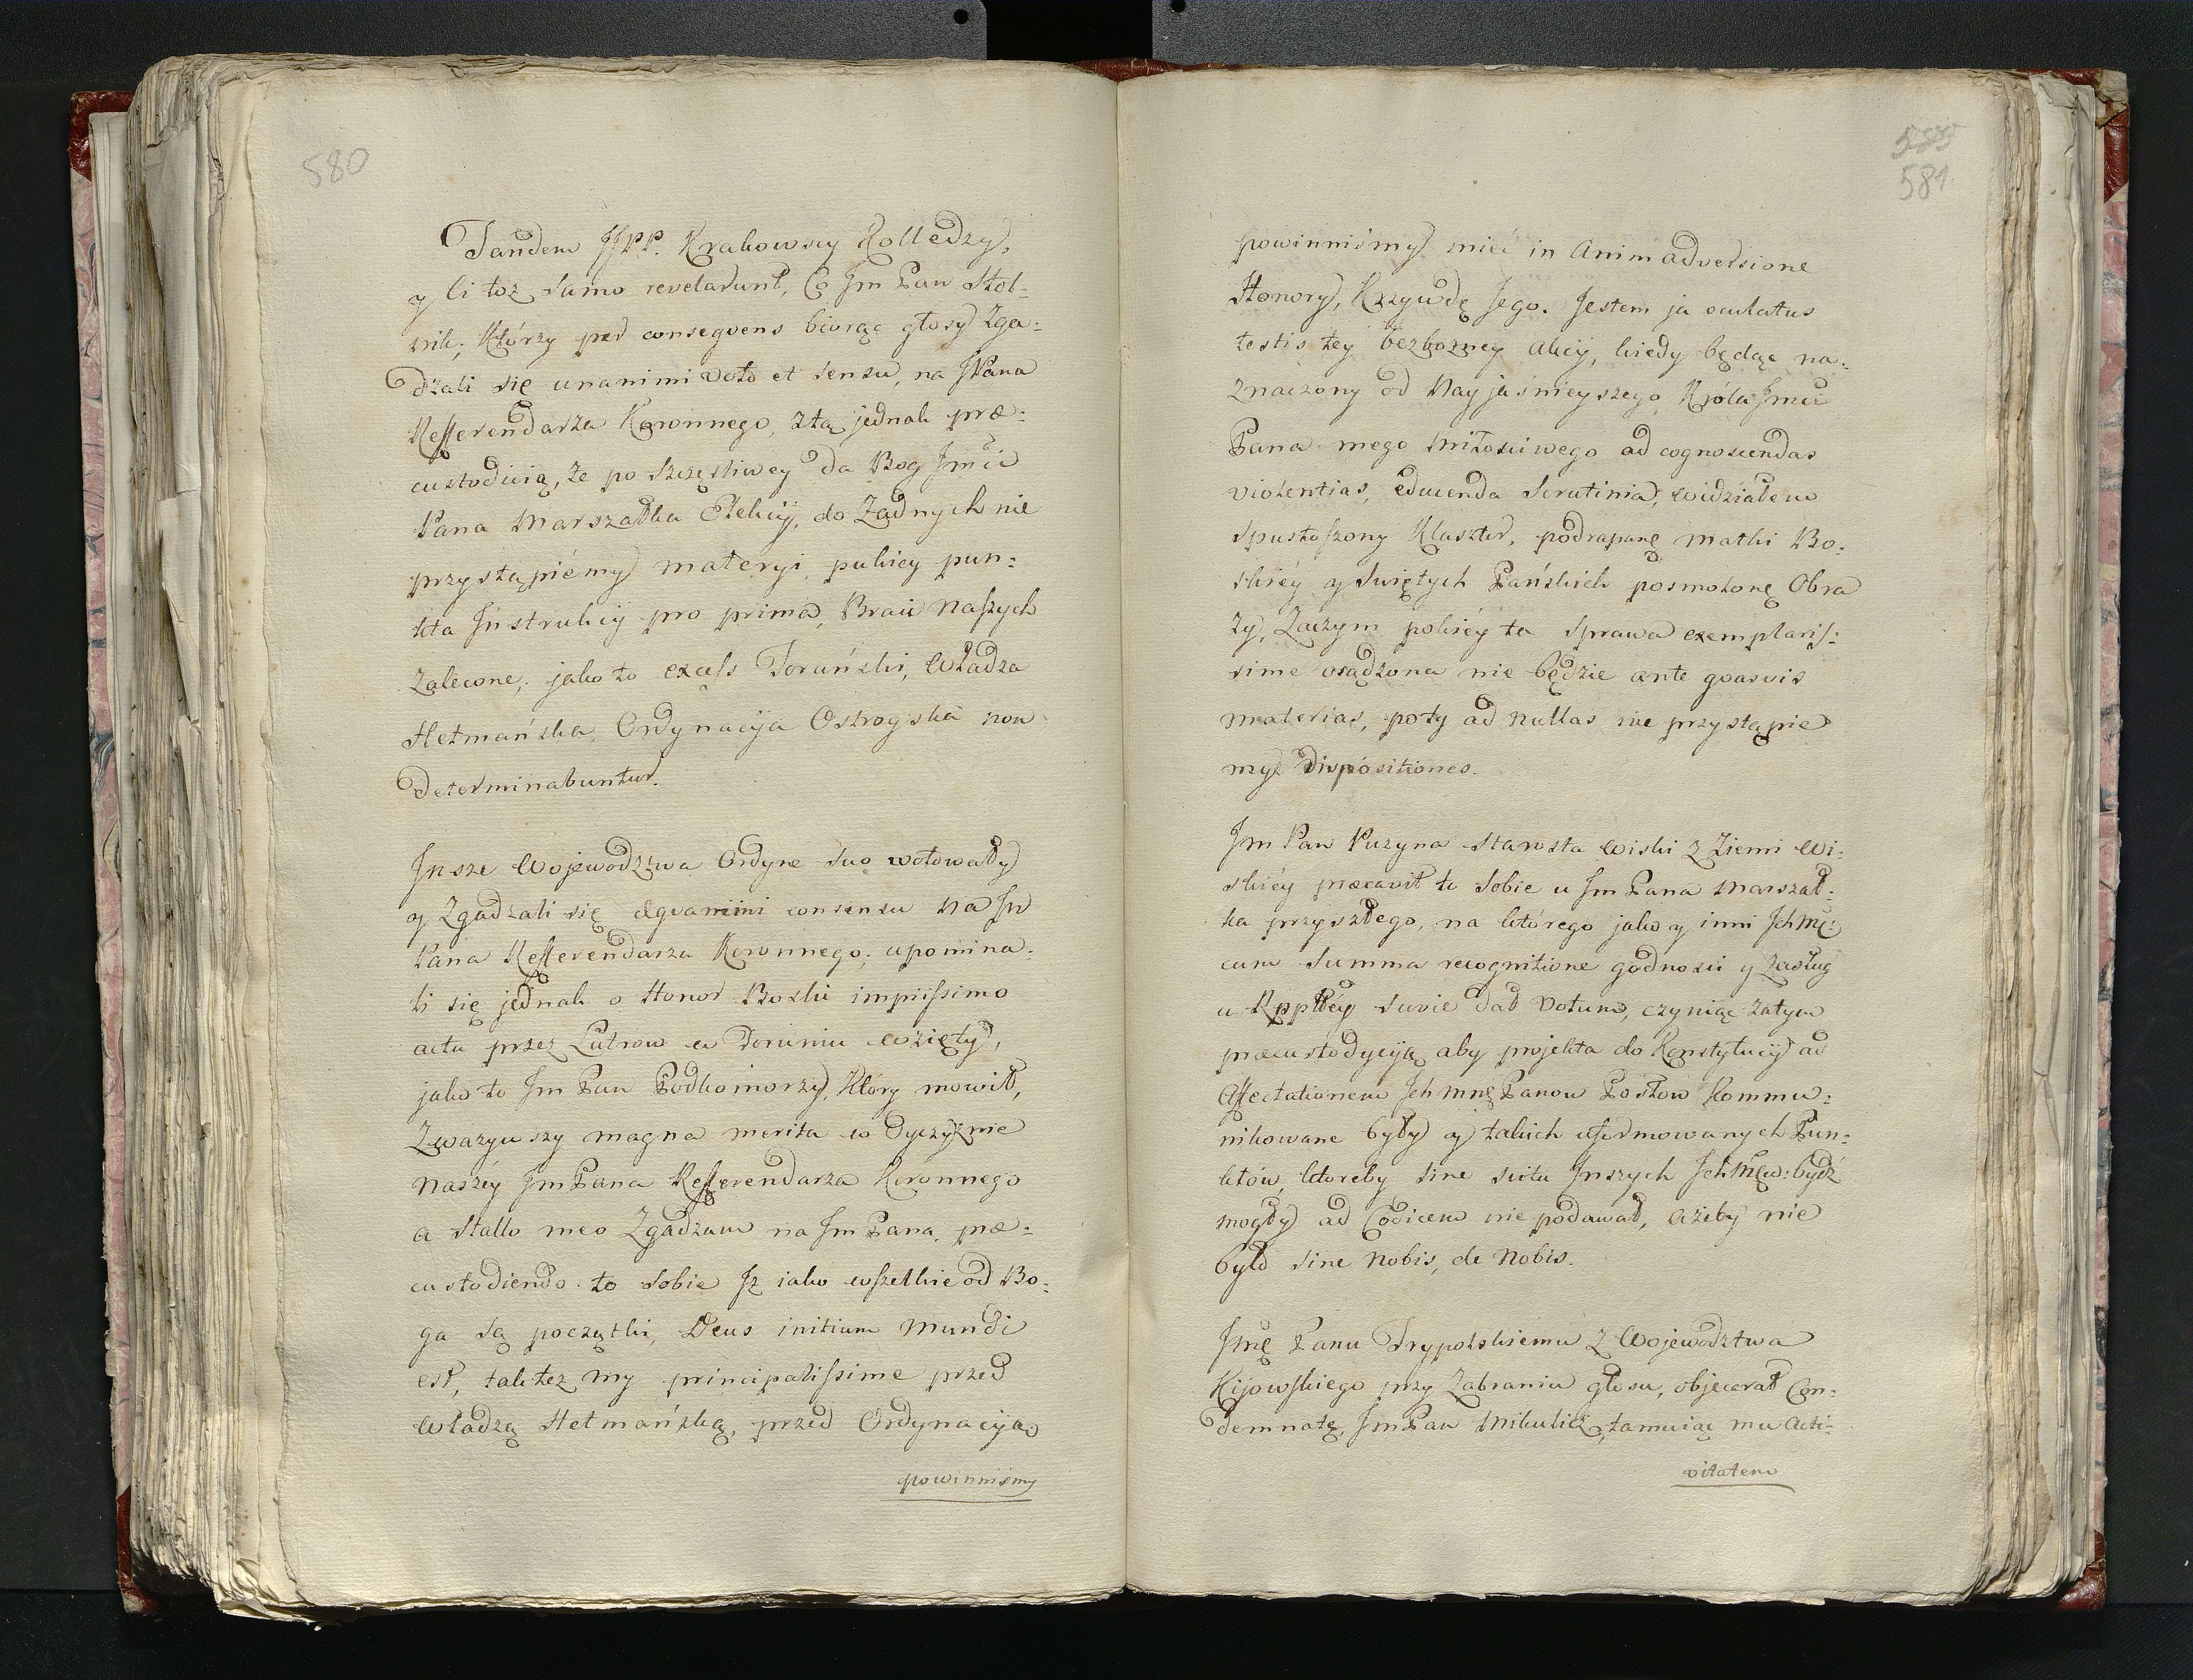 580
Tandem JJPP. Krakowscy Kolledzy,
y ci toż samo revelarunt, Co Jm Pan Stol-
nik; Którzy per conseqvens biorąc głosy Zga-
dzali się unanimi voto et sensu, na JPana
Refferendarza Koronnego, z tą jednak præ-
custodicią, że po szczęśliwey da Bog Jmci
Pana Marszałka Elekcij, do Żadnych nie
przystąpiémy materyi, pukicy pun-
kta Jnstrukcij pro prima, Braci naszych
zalecone; jako to excess Toruński, Władza
Hetmańska, Ordynacija Ostrogska non
determinabuntur.
Jnsze Wojewodztwa Ordyne suo wotowały
y Zgadzali się æqvanimi consensu na Jm
Pana Refferendarza Koronnego; upomina-
li się jednak o Honor Boski impiissimo
actu przez Lutrow w Toruniu wzięty,
jako to Jm Pan Podkomorzy, Który mowił,
Zważywszy magna merita w Oyczyznie
naszéy Jm Pana Refferendarza Koronnego
a Stallo meo Zgadzam na Jm Pana, præ-
custodiendo to sobie Jż iako wszelkie od Bo-
ga są początki, Deus initium Mundi
est, tak też my principalissime przed
Władzą Hetmańską, przed Ordynacyją
powinniśmy
585
581
powinniśmy mieć in Animadversione
Honory, Krzywdę Jego. Jestem ja oculatus
testis tey bezbożney akcij, kiedy będąc na-
znaczony od Nayjaśnieyszego Króla Jmci
Pana mego Miłościwego ad cognoscendas
violentias, educenda Scrutinia, widziałem
spustoszony Klasztor, podrapanę matki Bo-
skiéy y Swiętych Pańskich posmolonę Obra
zy, Zaczym pokiéy ta sprawa exemplaris-
sime osądzona nie będzie ante qvasvis
materias, poty ad nullas nie przystąpie
my dispositiones.
Jm Pan Puzyna Starosta Wiski z Ziemi Wi-
skiéy præcavit to sobie u Jm Pana Marszał-
ka przyszłego, na którego jako y inni Jchmę:
cum summa recognitione godności y zasług
u Rppltéy suwie dał votum, czyniąc zatym
præcustodycyją aby projekta do Konstytucij ad
Affectationem Jchmnę Panow Posłow Kommu-
nikowane były y takich uformowanych Pun-
któw, ktoreby sine scitu Jnszych Jchmęw: bydź
mogły ad Codicem nie podawał, ażeby nie
było sine Nobis, de Nobis.
Jmę Panu Trypolskiemu z Wojewodztwa
Kijowskiego przy Zabraniu głosu, objecerat Con-
demnatę, Jm Pan Mikulicz, tamuiąc mu Acti-
vitatem